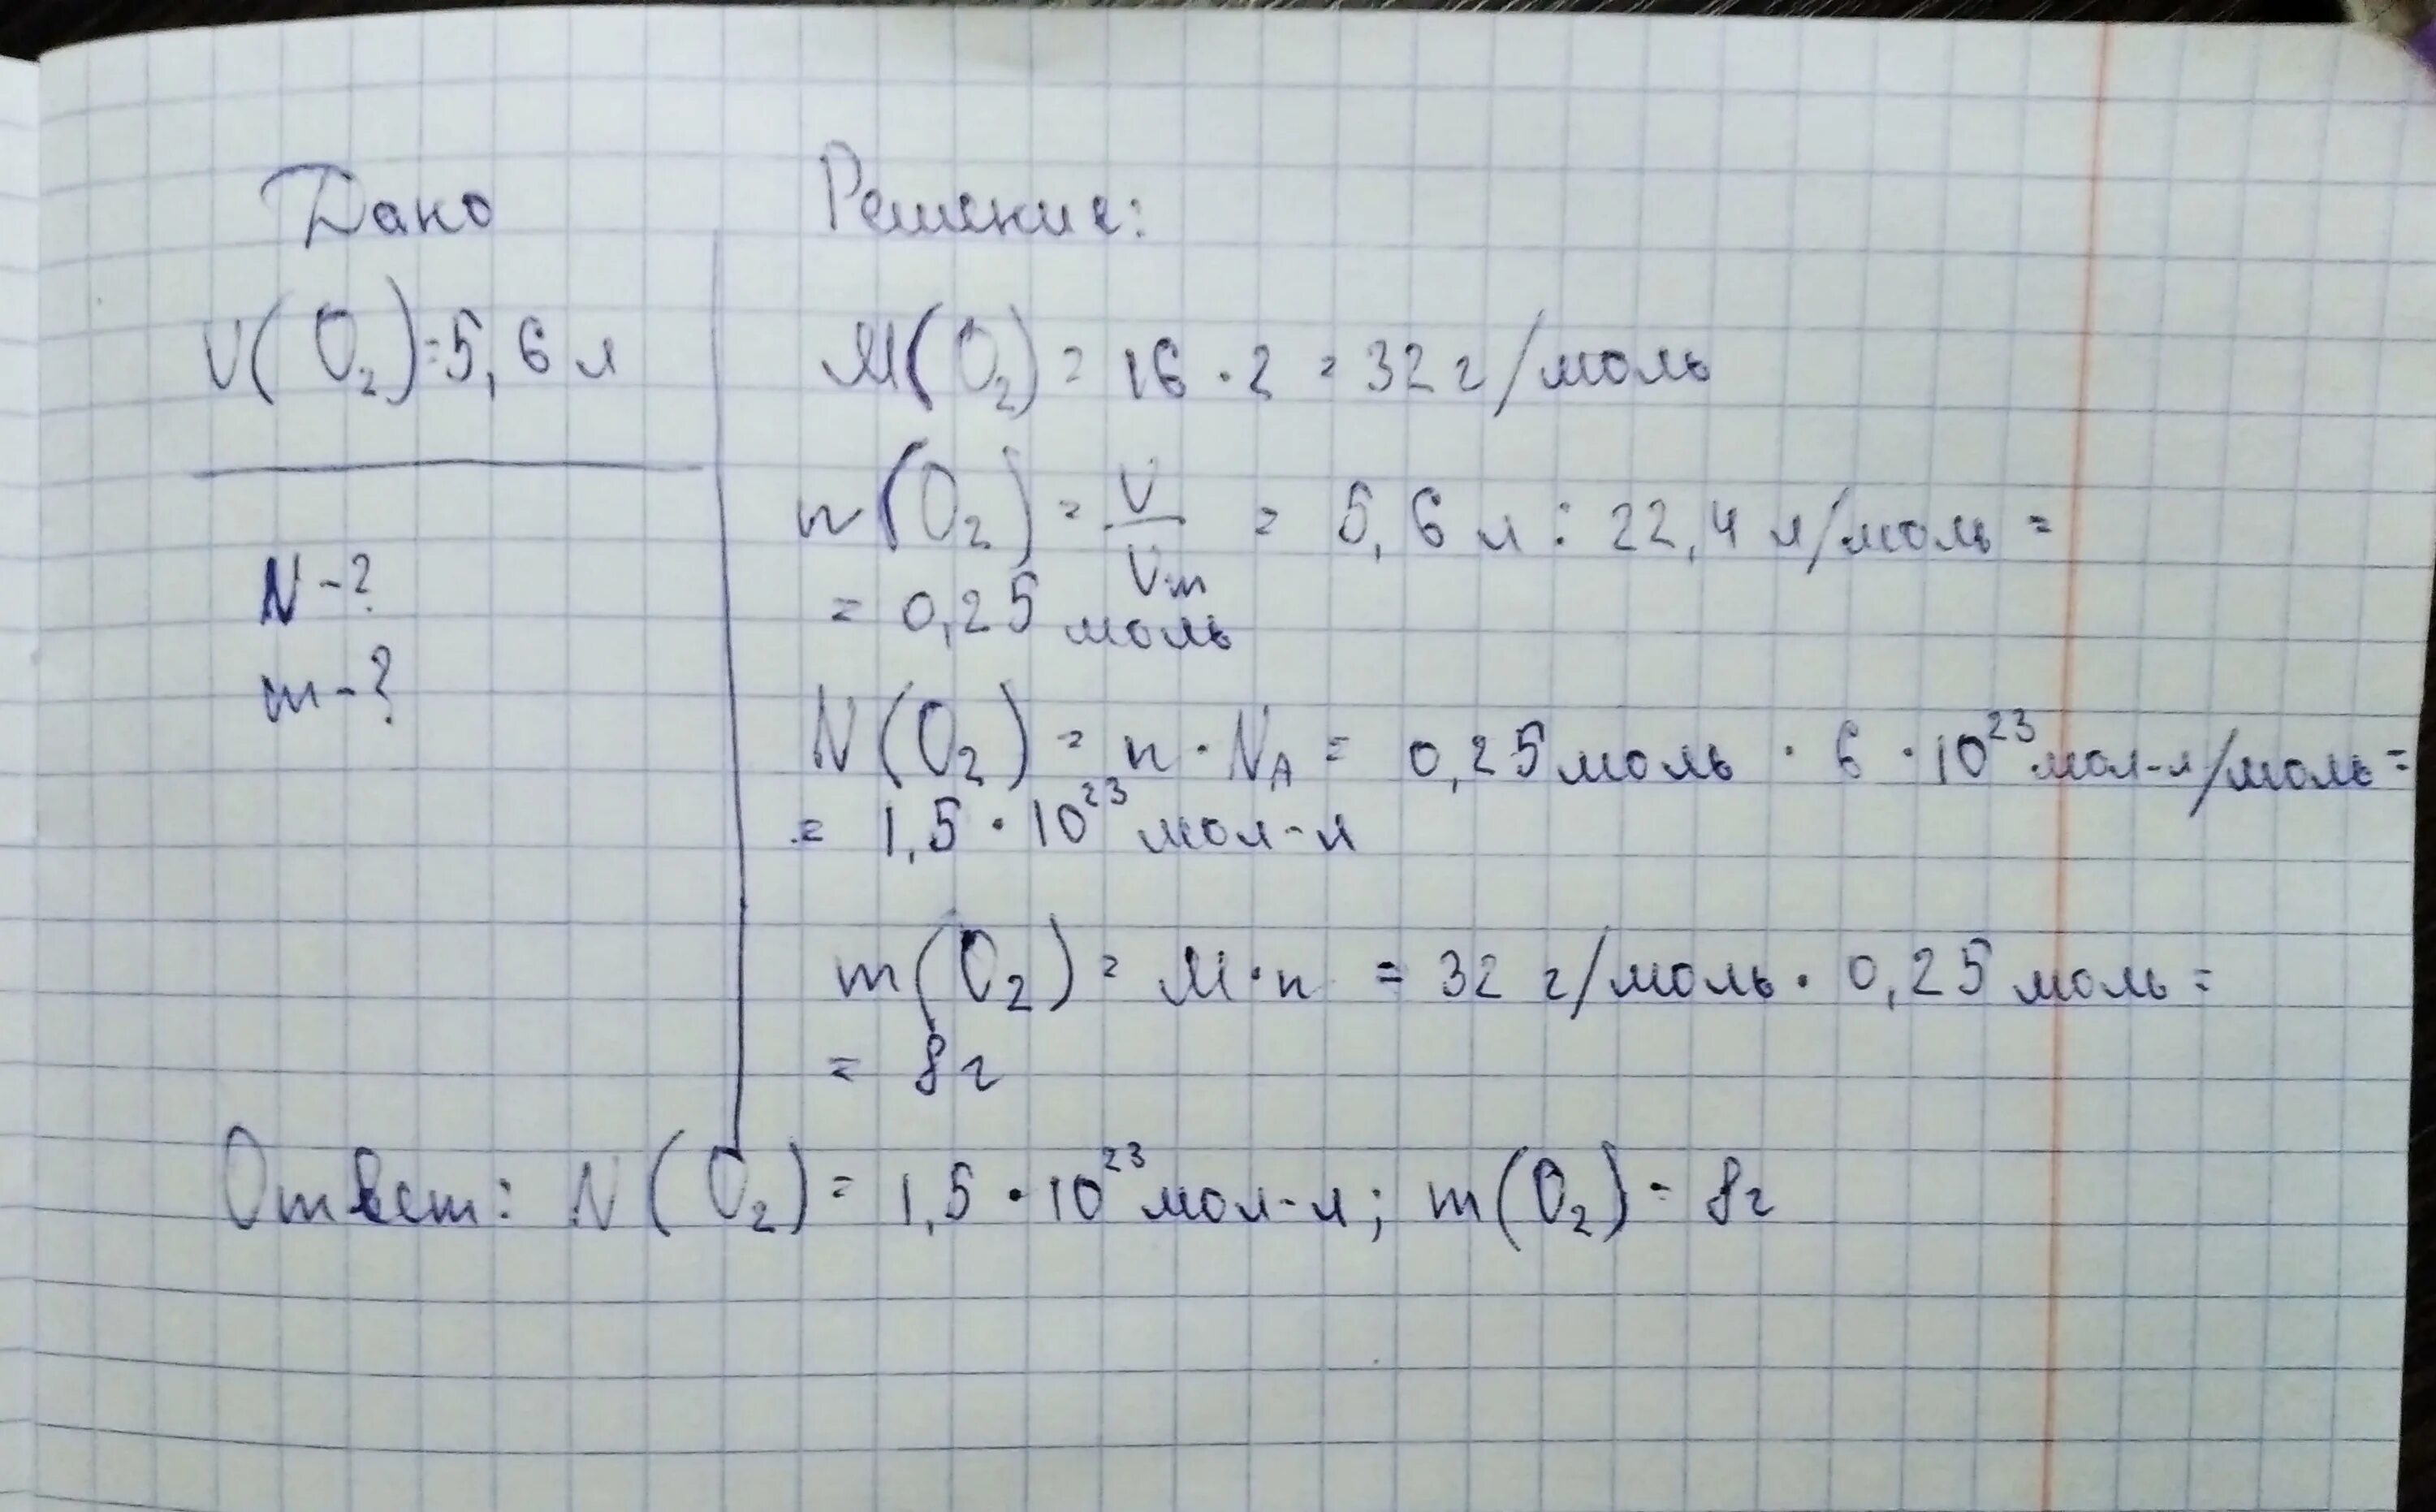 Дано
V(O₂)=5,6 л
N-?
m-?
Решение:
M(O₂) = 16 · 2 = 32 г/моль
n(O₂) = V/Vm = 5,6 л : 22,4 л/моль =
= 0,25 моль
N(O₂) = n · N_A = 0,25 моль · 6 · 10²³ мол-л/моль =
= 1,5 · 10²³ мол-л
m(O₂) = M · n = 32 г/моль · 0,25 моль =
= 8г
Ответ: N(O₂) = 1,5 · 10²³ мол-л; m(O₂) = 8г